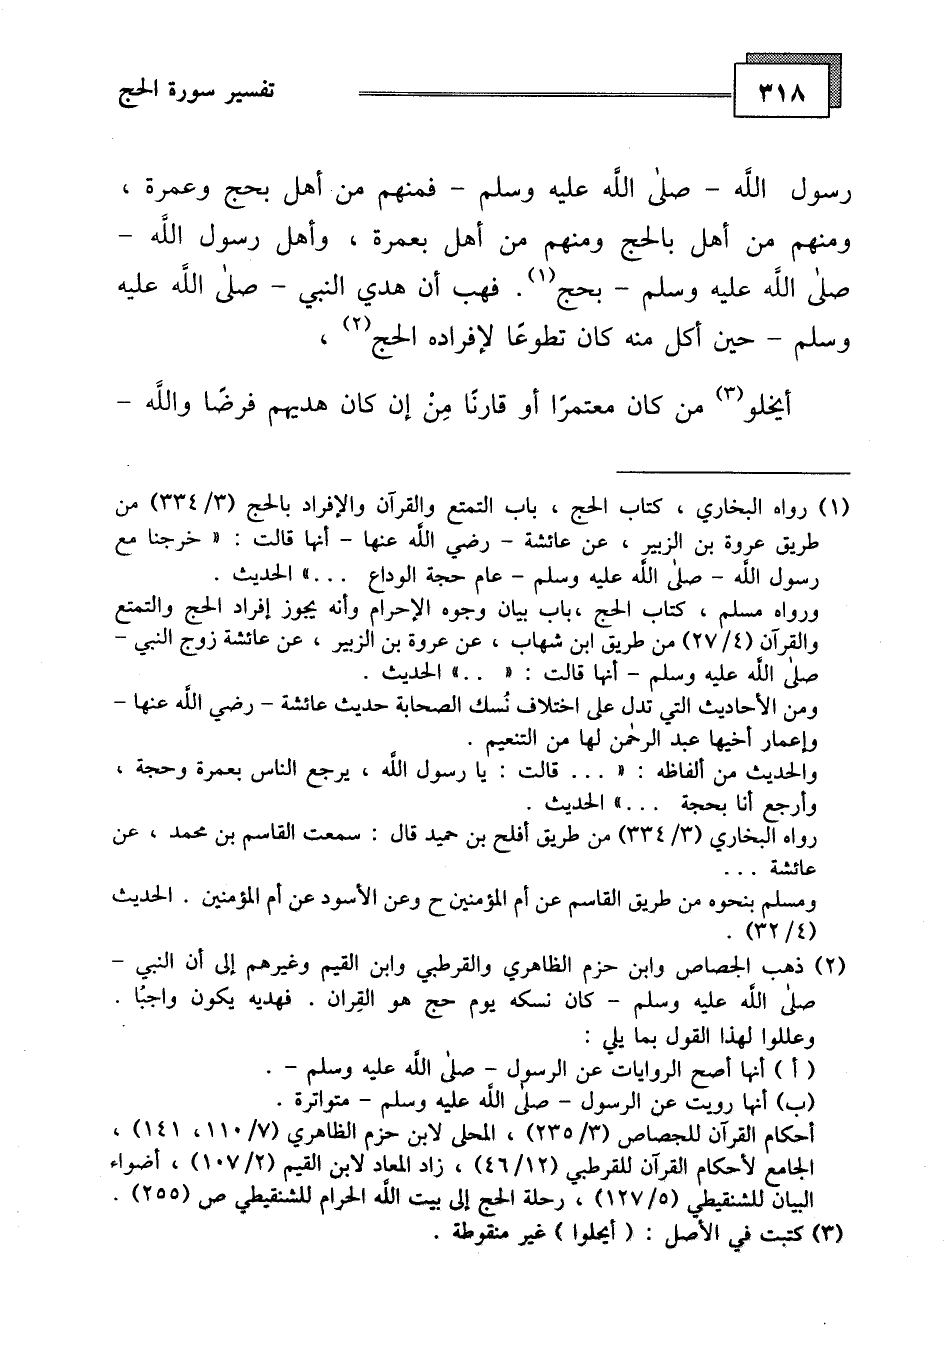 ٣١٨
تفسير سورة الحج
رسول اللَّه - صلىٰ اللَّه عليه وسلم - فمنهم من أهل بحج وعمرة ،
ومنهم من أهل بالحج ومنهم من أهل بعمرة ، وأهل رسول اللَّه -
صلىٰ اللَّه عليه وسلم - بحج(١). فهب أن هدي النبي - صلىٰ اللَّه عليه
وسلم - حين أكل منه كان تطوعًا لإفراده الحج(٢) ،
أيخلو(٣) من كان معتمرًا أو قارنًا مِنْ إن كان هديهم فرضًا واللَّه -
(١) رواه البخاري ، كتاب الحج ، باب التمتع والقرآن والإفراد بالحج (٣/ ٣٣٤) من
طريق عروة بن الزبير ، عن عائشة - رضي اللَّه عنها - أنها قالت : « خرجنا مع
رسول اللَّه - صلىٰ اللَّه عليه وسلم - عام حجة الوداع ...» الحديث .
ورواه مسلم ، كتاب الحج ،باب بيان وجوه الإحرام وأنه يجوز إفراد الحج والتمتع
والقرآن (٤/ ٢٧) من طريق ابن شهاب ، عن عروة بن الزبير ، عن عائشة زوج النبي -
صلىٰ اللَّه عليه وسلم - أنها قالت : « ..» الحديث .
ومن الأحاديث التي تدل على اختلاف نُسك الصحابة حديث عائشة - رضي اللَّه عنها -
وإعمار أخيها عبد الرحمٰن لها من التنعيم .
والحديث من ألفاظه : « ... قالت : يا رسول اللَّه ، يرجع الناس بعمرة وحجة ،
وأرجع أنا بحجة ...» الحديث .
رواه البخاري (٣/ ٣٣٤) من طريق أفلح بن حميد قال : سمعت القاسم بن محمد ، عن
عائشة ...
ومسلم بنحوه من طريق القاسم عن أم المؤمنين ح وعن الأسود عن أم المؤمنين . الحديث
(٤/ ٣٢) .
(٢) ذهب الجصاص وابن حزم الظاهري والقرطبي وابن القيم وغيرهم إلى أن النبي -
صلىٰ اللَّه عليه وسلم - كان نسكه يوم حج هو القِران . فهديه يكون واجبًا .
وعللوا لهذا القول بما يلي :
( أ ) أنها أصح الروايات عن الرسول - صلىٰ اللَّه عليه وسلم - .
(ب) أنها رويت عن الرسول - صلىٰ اللَّه عليه وسلم - متواترة .
أحكام القرآن للجصاص (٣/ ٢٣٥) ، المحلى لابن حزم الظاهري (٧/ ١١٠، ١٤١) ،
الجامع لأحكام القرآن للقرطبي (١٢/ ٤٦) ، زاد المعاد لابن القيم (٢/ ١٠٧) ، أضواء
البيان للشنقيطي (٥/ ١٢٧) ، رحلة الحج إلى بيت اللَّه الحرام للشنقيطي ص (٢٥٥) .
(٣) كتبت في الأصل : ( أيحلوا ) غير منقوطة .